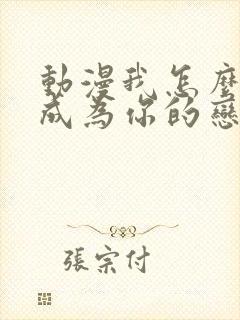 動漫我怎麼
成為你的戀
張宗付